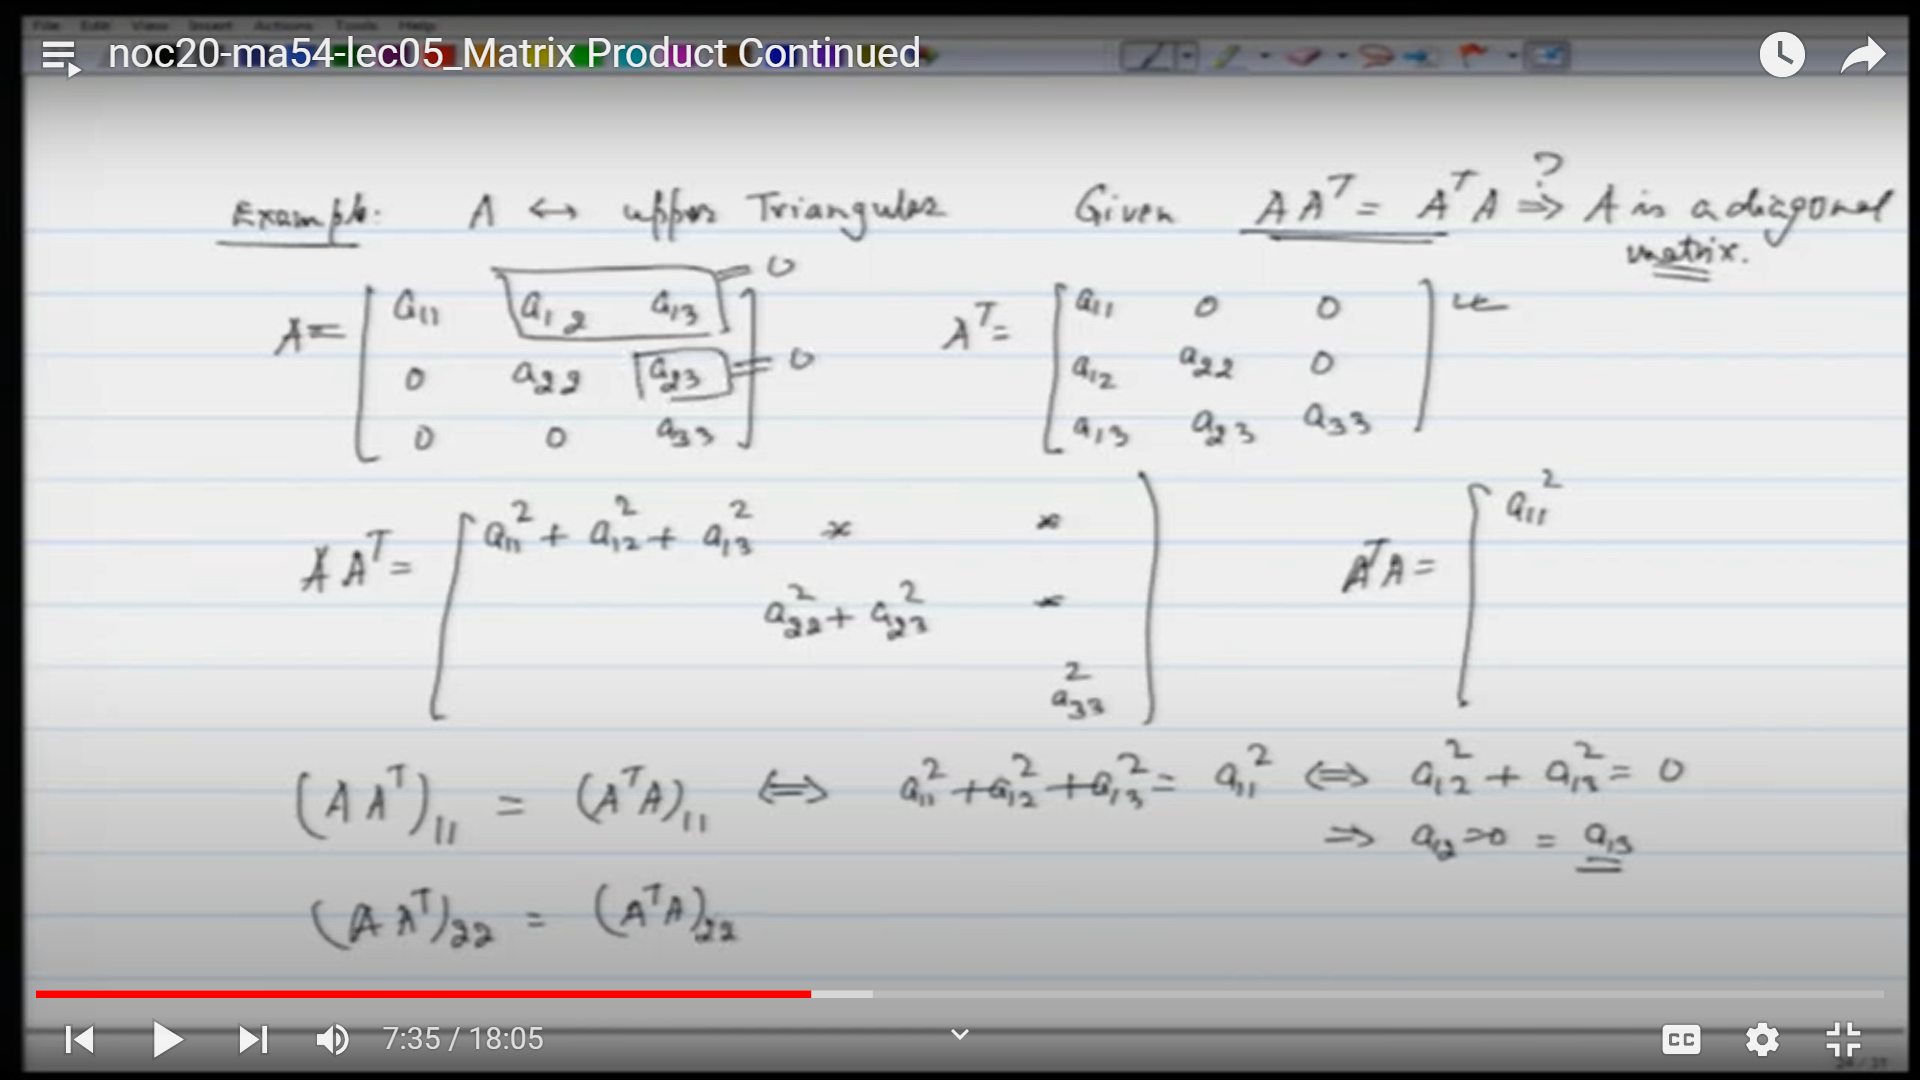 File Edit View Insert Actions Tools Help
noc20-ma54-lec05_Matrix Product Continued
Example: A ↔ upper Triangular Given A Aᵀ = Aᵀ A ⇒ ? A is a diagonal
matrix.
A = [ a₁₁ a₁₂ a₁₃ = 0
0 a₂₂ a₂₃ = 0
0 0 a₃₃ ]
Aᵀ = [ a₁₁ 0 0
a₁₂ a₂₂ 0
a₁₃ a₂₃ a₃₃ ]
A Aᵀ = [ a₁₁² + a₁₂² + a₁₃² * *
a₂₂² + a₂₃² *
a₃₃² ]
AᵀA = [ a₁₁²
(A Aᵀ)₁₁ = (AᵀA)₁₁ ⇔ a₁₁² + a₁₂² + a₁₃² = a₁₁² ⇔ a₁₂² + a₁₃² = 0
⇒ a₁₂ = 0 = a₁₃
(A Aᵀ)₂₂ = (AᵀA)₂₂
7:35 / 18:05
CC